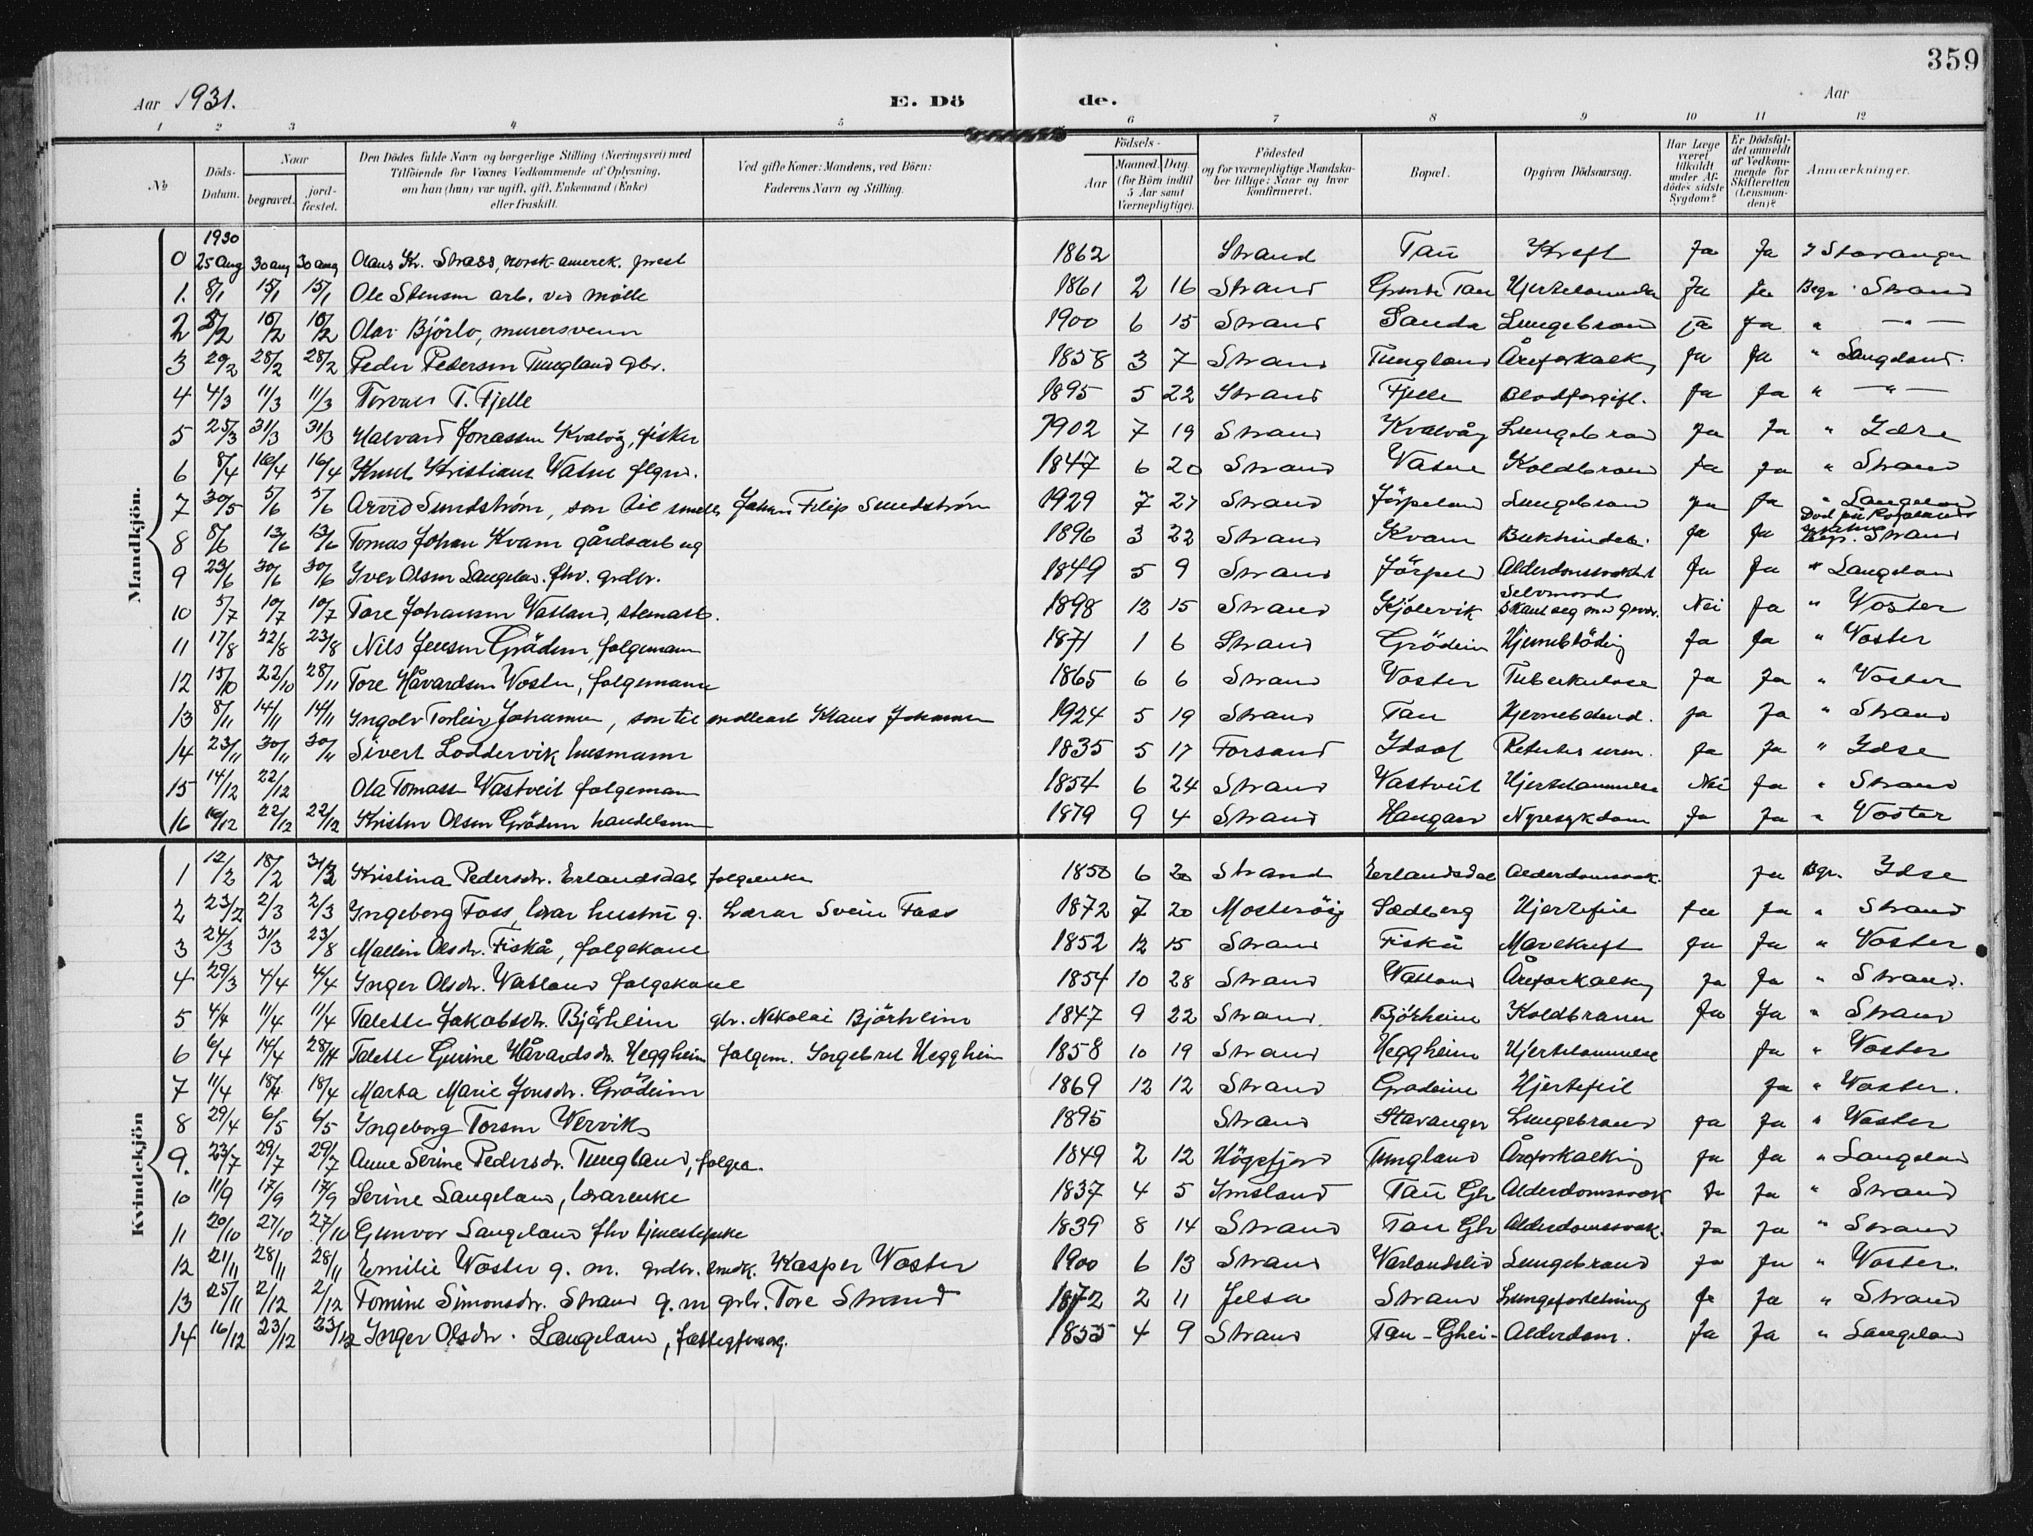 359
Aar 1931. E. Dö de. Aar
1 2 3 4 5 6 7 8 9 10 11 12
№ Döds-Datum. Naar begravet. jord-fæstet. Den Dödes fulde Navn og borgerlige Stilling (Næringsvei) med Tilföiende for Voxnes Vedkommende af Oplysning, om han (hun) var ugift, gift, Enkemand (Enke) eller fraskilt. Ved gifte Koner: Mandens, ved Börn: Faderens Navn og Stilling. Födsels- Aar Maaned. Dag. (for Börn indtil 5 Aar samt Værnepligtige). Födested og for værnepligtige Mandskaber tillige: Naar og hvor konfirmeret. Bopæl. Opgiven Dödsaarsag. Har Læge været tilkaldt under Afdödes sidste Sygdom? Er Dödsfaldet anmeldt af Vedkommende for Skifteretten (Lensmanden)? Anmærkninger.
Mandkjön.
1930
0 25 aug 30 aug 30 aug Olaus Kr. Strass, norsk-amerik. prest 1862 Strand Tau Kreft Ja Ja I Stavanger
1. 8/1 15/1 15/1 Ole Stensen arb. ved mölle 1861 2 16 Strand Tau Hjertelammelse Ja Ja Begr. Strand
2 10/2 10/2 Olai Björlo, murersvenn 1900 6 15 Strand Sanda Lungebrand ja ja " — " —
3 20/2 28/2 28/2 Peder Pedersen Tungland gbr. 1858 3 7 Strand Tungland Åreforkalkg Ja Ja " Langeland.
4 4/3 11/3 11/3 Torvald T. Fjelle 1895 5 22 Strand Fjelle Blodforgift. Ja Ja " — " —
5 25/3 31/3 31/3 Halvard Jonassen Kvalvåg, fisker 1902 7 19 Strand Kvalvåg Lungebrand Ja Ja " Idse
6 8/4 16/4 16/4 Knut Kristians Vatne flgm. 1847 6 20 Strand Vatne Koldbrand Ja Ja " Strand
7 30/5 5/6 5/6 Arvid Sundström, son til smelt. Johan Filip Sundström 1929 7 27 Strand Jörpeland Lungebrand Ja Ja " Langeland
8 8/6 13/6 13/6 Tomas Johan Kvam gårdsarb ug 1896 3 22 Strand Kvam Bukhindeb. Ja Ja Död på Rogalands Begr. Strand
9 23/6 30/6 30/6 Iver Olsen Langeland. fhv. grdbr. 1849 5 9 Strand Jörpeld Alderdomssvakhet Ja Ja " Langeland
10 5/7 10/7 10/7 Tore Johansen Vatland, stenarb. 1898 12 15 Strand Kjölevik Selvmord skaut seg med gevær. Nei Ja " Voster
11 17/8 22/8 23/8 Nils Jensen Grödem, folgemann 1871 1 6 Strand Grödeim Hjerneblöding Ja Ja " Voster
12 15/10 22/10 28/11 Tore Håvardsen Voster, folgemann 1865 6 6 Strand Voster Tuberkulose Ja Ja " Voster
13 8/11 14/11 14/11 Ingolv Torleiv Johannesen, son til smeltearb Klaus Johannesen 1924 5 19 Strand Tau Hjernebetend. Ja Ja " Strand
14 23/11 30/11 30/11 Sivert Loddervik husmann 1835 5 17 Forsand Idsal Ja Ja " Idse
15 14/12 22/12 Ola Tomass Vastveit folgeman 1854 6 24 Strand Vastveit Hjertelammelse Nei Ja " Strand
16 16/12 22/12 22/12 Kristen Olsen Grödem handelsmn 1879 9 4 Strand Haugane Nyresykdom Ja Ja " Voster
Kvindekjön
1 12/2 18/2 Kristina Pedersdr. Erlandsdal folgeenke 1850 6 20 Strand Erlandsdal Alderdomssvak. Ja Begr. Idse
2 23/2 2/3 2/3 Ingeborg Foss, lærarhustru g. Lærar Svein Foss 1872 7 20 Mosteröig Sædberg Hjertefeil Ja Ja " Strand
3 24/3 31/3 23/8 Mallin Olsdr. Fiskå, folgekone 1852 12 15 Strand Fiskå Mavekreft Ja Ja " Voster
4 29/3 4/4 4/4 Inger Olsdr. Vatland folgekone 1854 10 28 Strand Vatland Åreforkalkng Ja Ja " Strand.
5 4/4 11/4 11/4 Talette Jakobsdr. Björheim gbr. Nikolai Björheim 1847 9 22 Strand. Björheim Koldbrann Ja Ja " Strand
6 6/4 14/4 28/4 Talette Gurine Håvardsdr. Heggheim folgem. Ingebret Heggheim 1858 10 19 Strand Heggheim Hjertelammelse Ja " Voster
7 11/4 18/4 18/4 Marta Marie Jonsdr. Grödeim 1869 12 12 Strand Grodeim Hjertefeil Ja " Voster.
8 29/4 6/5 6/5 Ingeborg Torsen Vervik 1895 Strand Stavanger Lungebrand Ja Ja " Voster
9. 23/7 29/7 29/7 Anne Serine Pedersdr. Tungland, folgea. 1849 2 12 Högsfjord Tungland Åreforkalking Ja Ja " Langeland
10 11/9 17/9 17/9 Serine Langeland, lærarenke 1837 4 5 Imsland Tau Gh Alderdomssvak Ja Ja " Strand
11 20/10 27/10 27/10 Gunvor Langeland fhv tjenestepike 1839 8 14 Strand Tau Gh Alderdomssvak. Ja Ja " Strand
12 21/11 28/11 28/11 Emilie Voster g. m. grdbr. smdk. Kasper Voster 1900 6 13 Strand Varlandslid Lungebrand Ja Ja " Voster.
13 25/11 2/12 2/12 Tomine Simonsdr. Strand g.m grbr. Tore Strand 1872 2 11 Jelsa Strand Lungefortetning Ja Ja " Strand
14 16/12 23/12 23/12 Inger Olsdr. Langeland, fattigforsorg. 1855 4 9 Strand Tau-Ghei- Alderdom. Ja Ja " Langeland